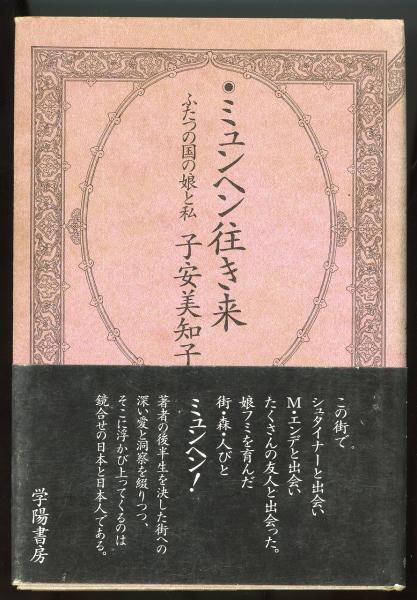 ・ミュンヘン往き来
ふたつの国の娘と私
子安美知子
この街で
シュタイナーと出会い
M・エンデと出会い
たくさんの友人と出会った。
娘フミを育んだ
街・森・人びと
ミュンヘン!
著者の後半生を決した街への
深い愛と洞察を綴りつつ、
そこに浮かび上ってくるのは
鏡合せの日本と日本人である。
学陽書房